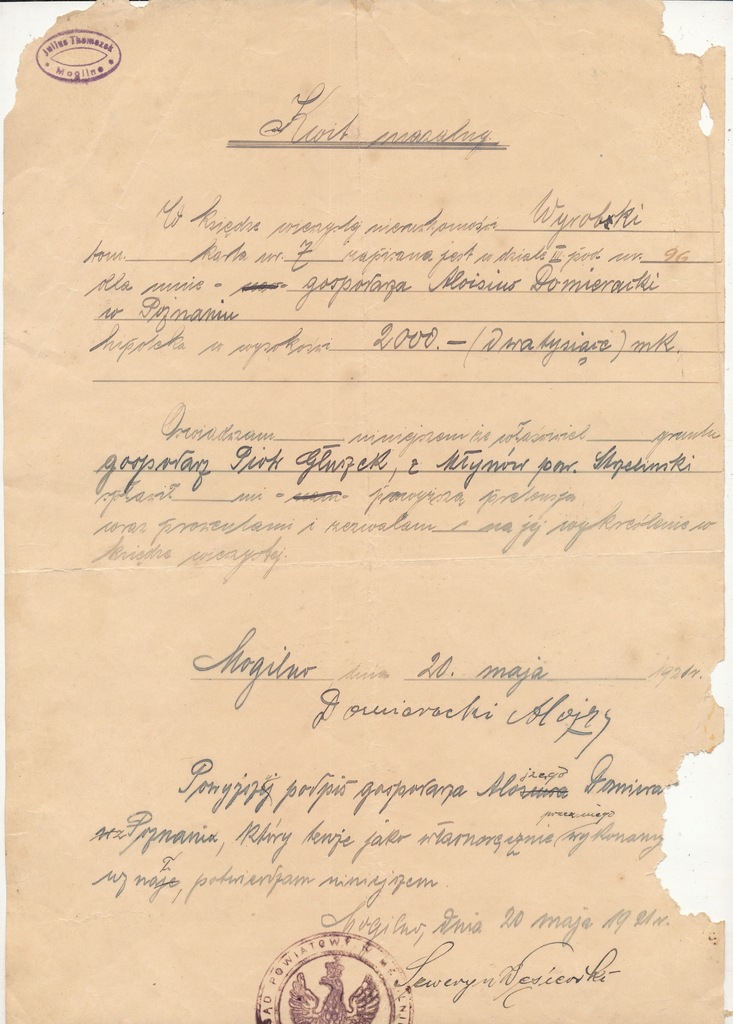 Julius Thomazek
Mogilno
Kwit mazalny.
W księdze wieczystej nieruchomości Wyrobki
tom. karta nr. 7 zapisana jest w dziale III pod nr. 96
dla mnie - gospodarza Aloisius Domieracki
w Poznaniu
hipoteka w wysokości 2000.— (Dwatysiące) mk.
Oświadczam niniejszem że właściciel gruntu
gospodarz Piotr Głuszek, z Młynów pow. Strzeliński
spłacił mi - powyższą pretensję
wraz procentami i zezwalam na jej wykreślenie w
księdze wieczystej.
Mogilno dnia 20. maja 1921r.
Domieracki Alojzy
Powyższy podpis gospodarza Alojzego Domiera
z Poznania, który tenże jako własnoręcznie przez niego wykonany
uznał, potwierdzam niniejszem.
Mogilno, dnia 20 maja 1921r.
Seweryn
SĄD POWIATOWY W MOGILNIE